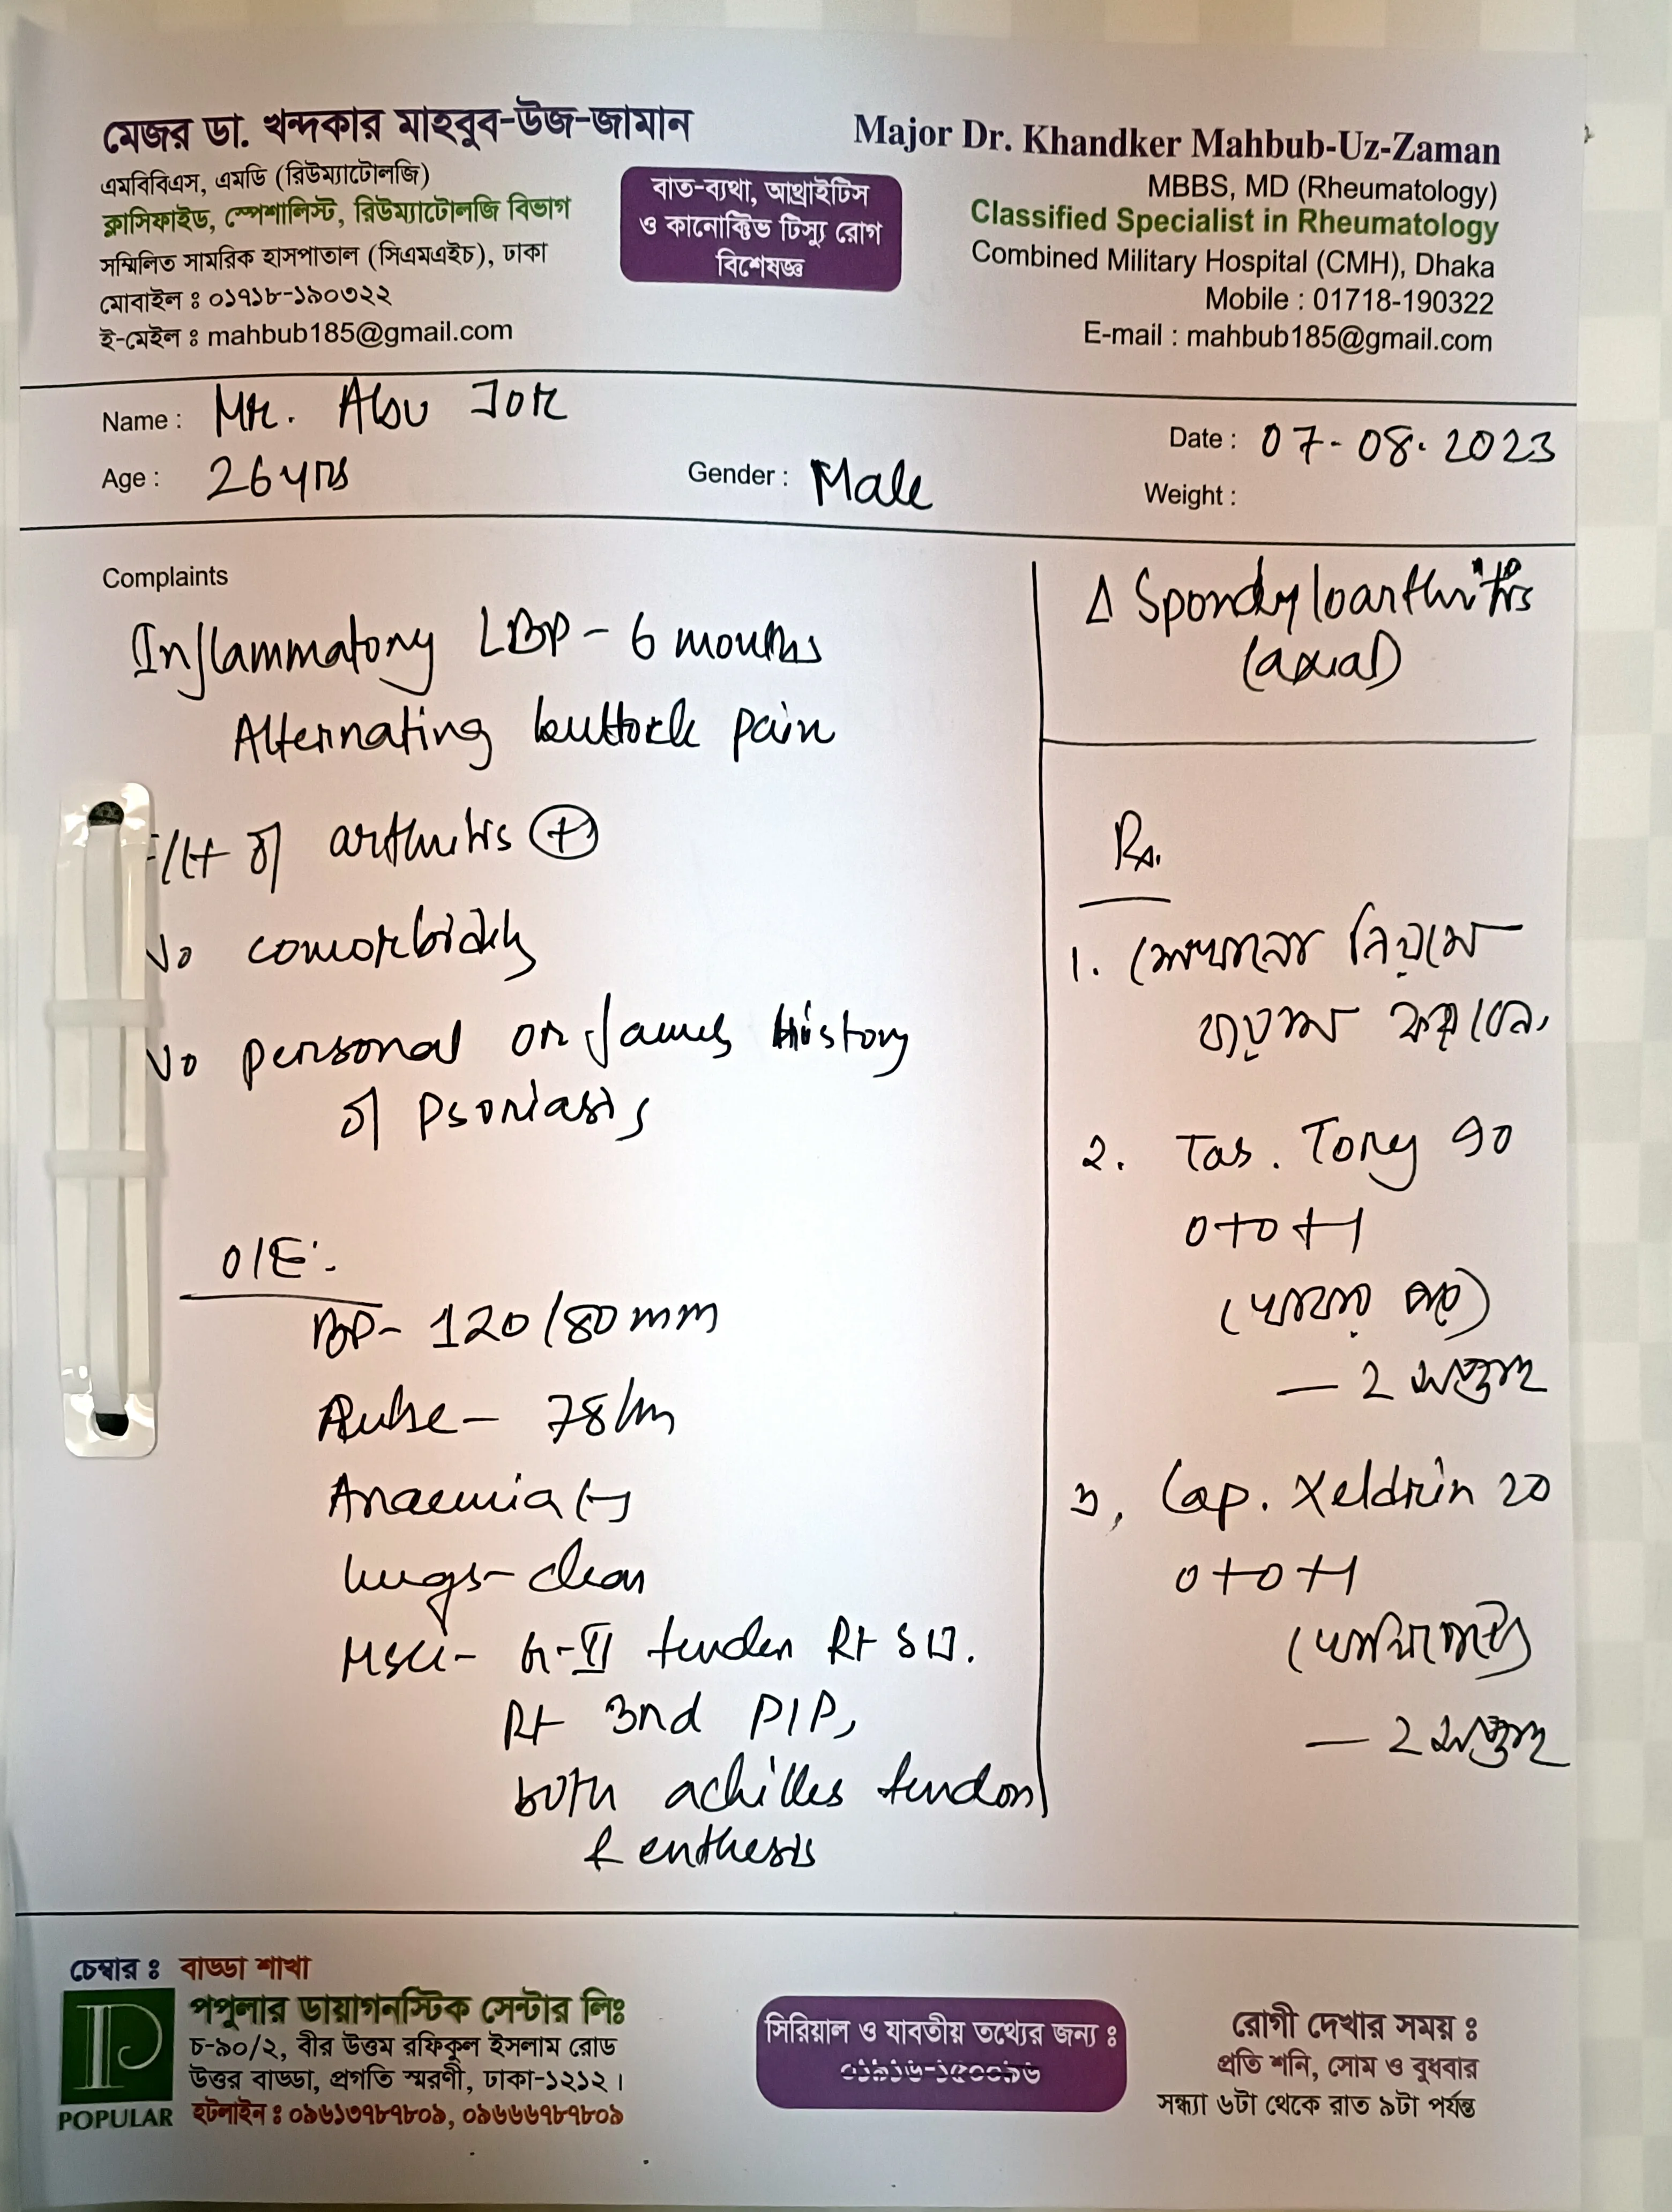 মেজর ডা. খন্দকার মাহবুব-উজ-জামান
এমবিবিএস, এমডি (রিউম্যাটোলজি)
ক্লাসিফাইড, স্পেশালিস্ট, রিউম্যাটোলজি বিভাগ
সম্মিলিত সামরিক হাসপাতাল (সিএমএইচ), ঢাকা
মোবাইল ঃ ০১৭১৮-১৯০৩২২
ই-মেইল ঃ mahbub185@gmail.com
বাত-ব্যথা, আর্থ্রাইটিস
ও কানেক্টিভ টিস্যু রোগ
বিশেষজ্ঞ
Major Dr. Khandker Mahbub-Uz-Zaman
MBBS, MD (Rheumatology)
Classified Specialist in Rheumatology
Combined Military Hospital (CMH), Dhaka
Mobile : 01718-190322
E-mail : mahbub185@gmail.com
Name : Mr. Abu
Date : 07-08-2023
Age : 26 yrs
Gender : Male
Weight :
Complaints
Inflammatory LBP - 6 months
Alternating buttock pain
F/H of arthritis (+)
No comorbidity
No personal or family history
of Psoriasis
O/E:-
BP- 120/80 mm
Pulse- 78/m
Anaemia (-)
Lungs- clear
G-II tender Rt SIJ.
Rt 3nd PIP,
both achilles tendon
& enthesis
Δ Spondyloarthritis
(axial)
Rx.
1. শেখানো নিয়মে
ব্যায়াম করবেন,
2. Tab. Tory 90
0+0+1
(খাবার পরে)
— 2 সপ্তাহ
৩, Cap. Xeldrin 20
0+0+1
(খালিপেটে)
— 2 সপ্তাহ
চেম্বার ঃ বাড্ডা শাখা
পপুলার ডায়াগনস্টিক সেন্টার লিঃ
চ-৯০/২, বীর উত্তম রফিকুল ইসলাম রোড
উত্তর বাড্ডা, প্রগতি স্মরণী, ঢাকা-১২১২।
হটলাইন ঃ ০৯৬১৩৭৮৭৮০৯, ০৯৬৬৬৭৮৭৮০৯
POPULAR
সিরিয়াল ও যাবতীয় তথ্যের জন্য ঃ
রোগী দেখার সময় ঃ
প্রতি শনি, সোম ও বুধবার
সন্ধ্যা ৬টা থেকে রাত ৯টা পর্যন্ত